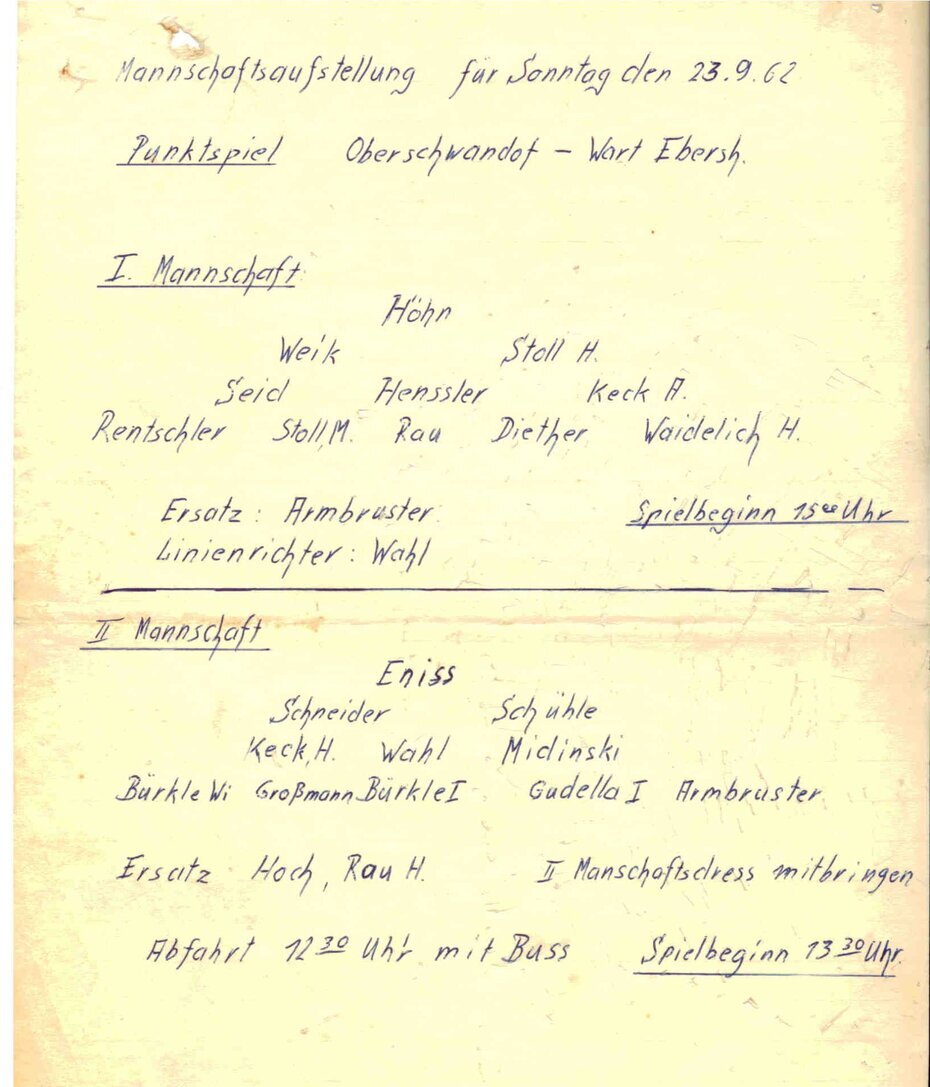 Mannschaftsaufstellung für Sonntag den 23.9.62
Punktspiel Oberschwandof – Wart Ebersh.
I. Mannschaft
Höhn
Weik Stoll H.
Seid Henssler Keck A.
Rentschler Stoll, M. Rau Diether Waidelich H.
Ersatz : Armbruster
Spielbeginn 15°° Uhr
Linienrichter : Wahl
II Mannschaft
Eniss
Schneider Schühle
Keck, H. Wahl Midinski
Bürkle Wi Großmann Bürkle I Gudella I Armbruster
Ersatz Hoch, Rau H. II Manschaftsdress mitbringen
Abfahrt 12 30 Uhr mit Buss Spielbeginn 13 30 Uhr.